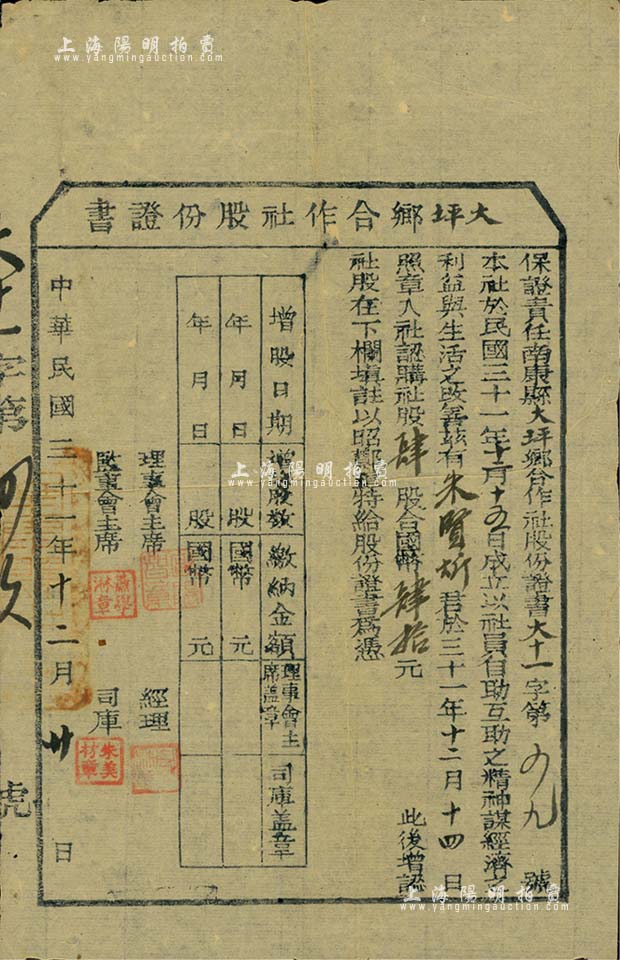 上海陽明拍賣
www.yangmingauction.com
大坪鄉合作社股份證書
保證責任南康縣大坪鄉合作社股份證書大十一字第 九號
本社於民國三十一年十二月十五日成立以社員自助互助之精神謀經濟之
利益與生活之改善茲有朱賢 君於三十一年十二月十四日
照章入社認購社股肆股合國幣肆拾元 此後增認
社股在下欄填註以昭 特給股份證書爲憑
增股日期 增股數 繳納金額 理事會主席盖章 司庫盖章
年月日 股 國幣 元
年月日 股 國幣 元
理事會主席 經理
監事會主席 司庫
蕭學淋章
朱美材章
中華民國三十一年十二月卅日
大十一字第 號
上海陽明拍賣
www.yangmingauction.com
上海陽明拍賣
www.yangmingauction.com